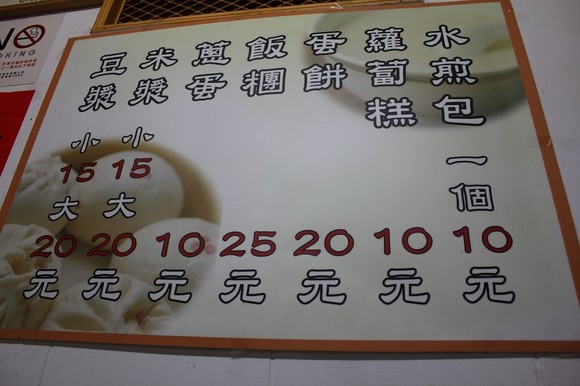 水煎包 一個 10元
蘿蔔糕 10元
蛋餅 20元
飯糰 25元
蔥蛋 10元
米漿 小15 大20元
豆漿 小15 大20元
KING